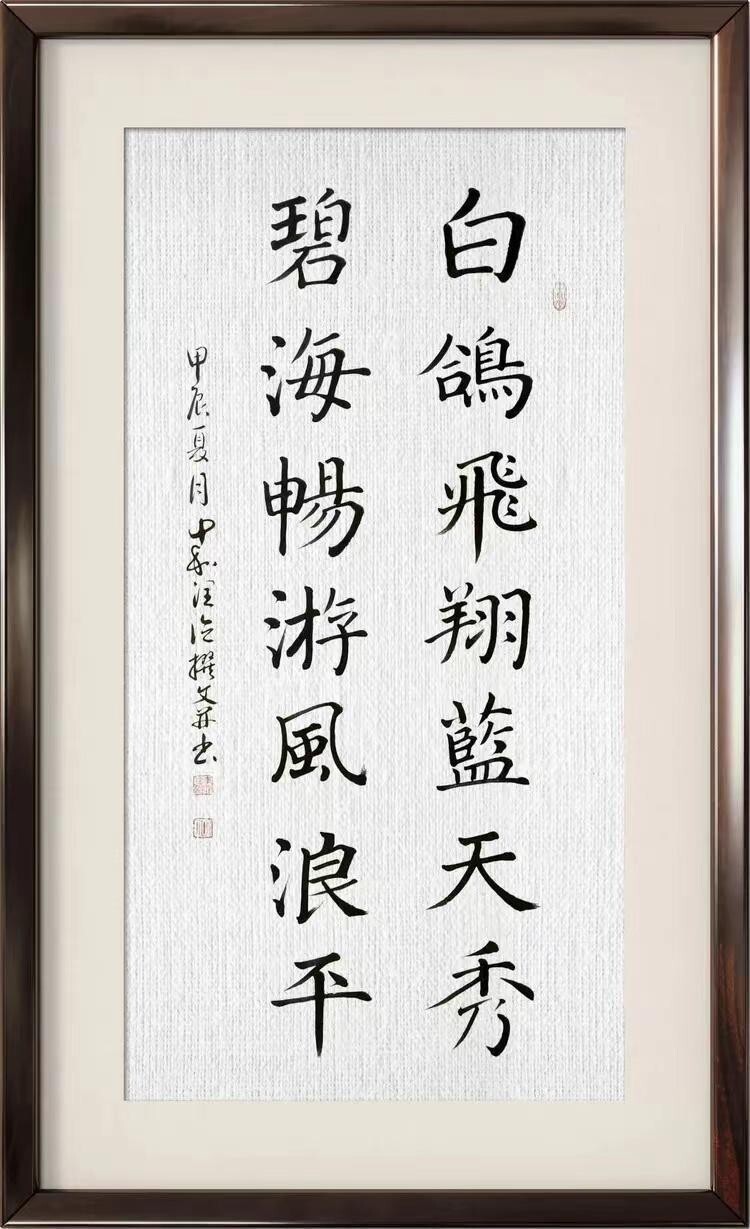 白鴿飛翔藍天秀
碧海暢游風浪平
甲辰夏月 撰文并书